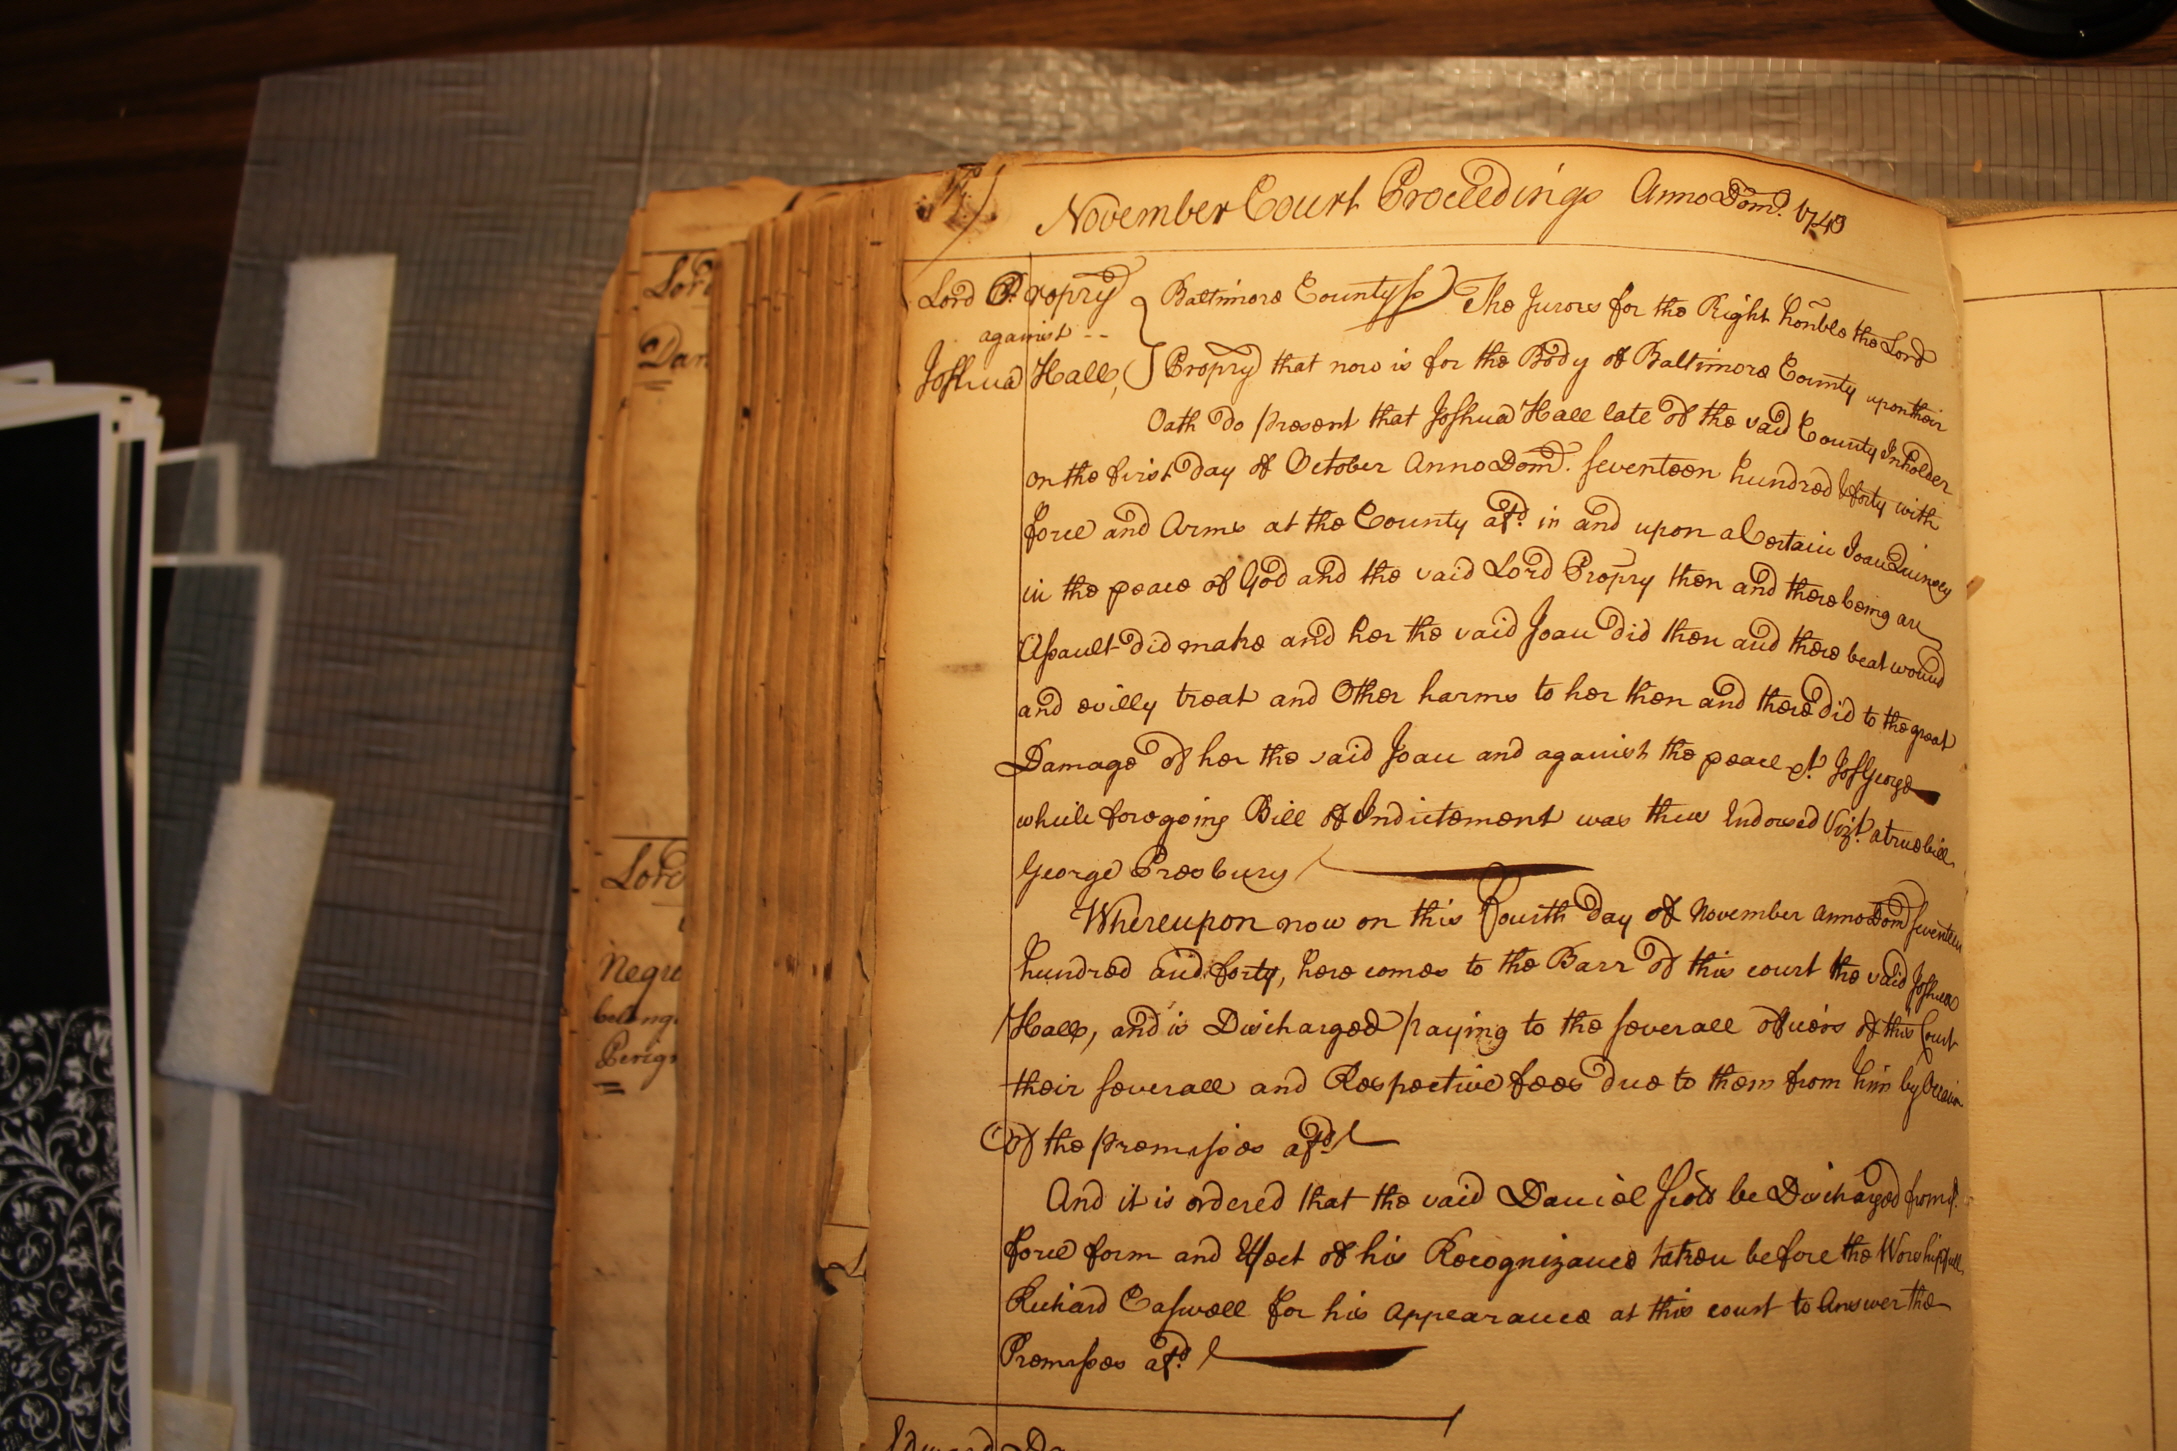 November Court Proceedings Anno Dom. 1740
Lord Propry
against --
Joshua Hall,
Baltimore County ss The Jurors for the Right honble the Lord
Propry that now is for the Body of Baltimore County upon their
Oath do present that Joshua Hall late of the said County Inholder
on the first Day of October Anno Dom. seventeen hundred & forty with
force and Arms at the County afd. in and upon a Certain Joan Quincey
in the peace of God and the said Lord Propry then and there being an
Assault did make and her the said Joan did then and there beat wound
and evilly treat and Other harms to her then and there did to the great
Damage of her the said Joan and against the peace &t. Jos George
which foregoing Bill of Indictement was thus Endorsed Vizt. a true bill
George Presbury
Whereupon now on this Fourth Day of November Anno Dom seventeen
hundred and forty, here comes to the Barr of this court the said Joshua
Hall, and is Discharged paying to the severall officers of this Court
their severall and Respective fees due to them from him by Occasion
Of the premisses afd
And it is ordered that the said Daniel Scott be Discharged from ye.
force form and Effect of his Recognizance taken before the Worshipfull
Richard Caswell for his Appearance at this court to Answer the
Premisses afd.
Lord
Dan
Lord
Negro
belong
Perigo
Edward